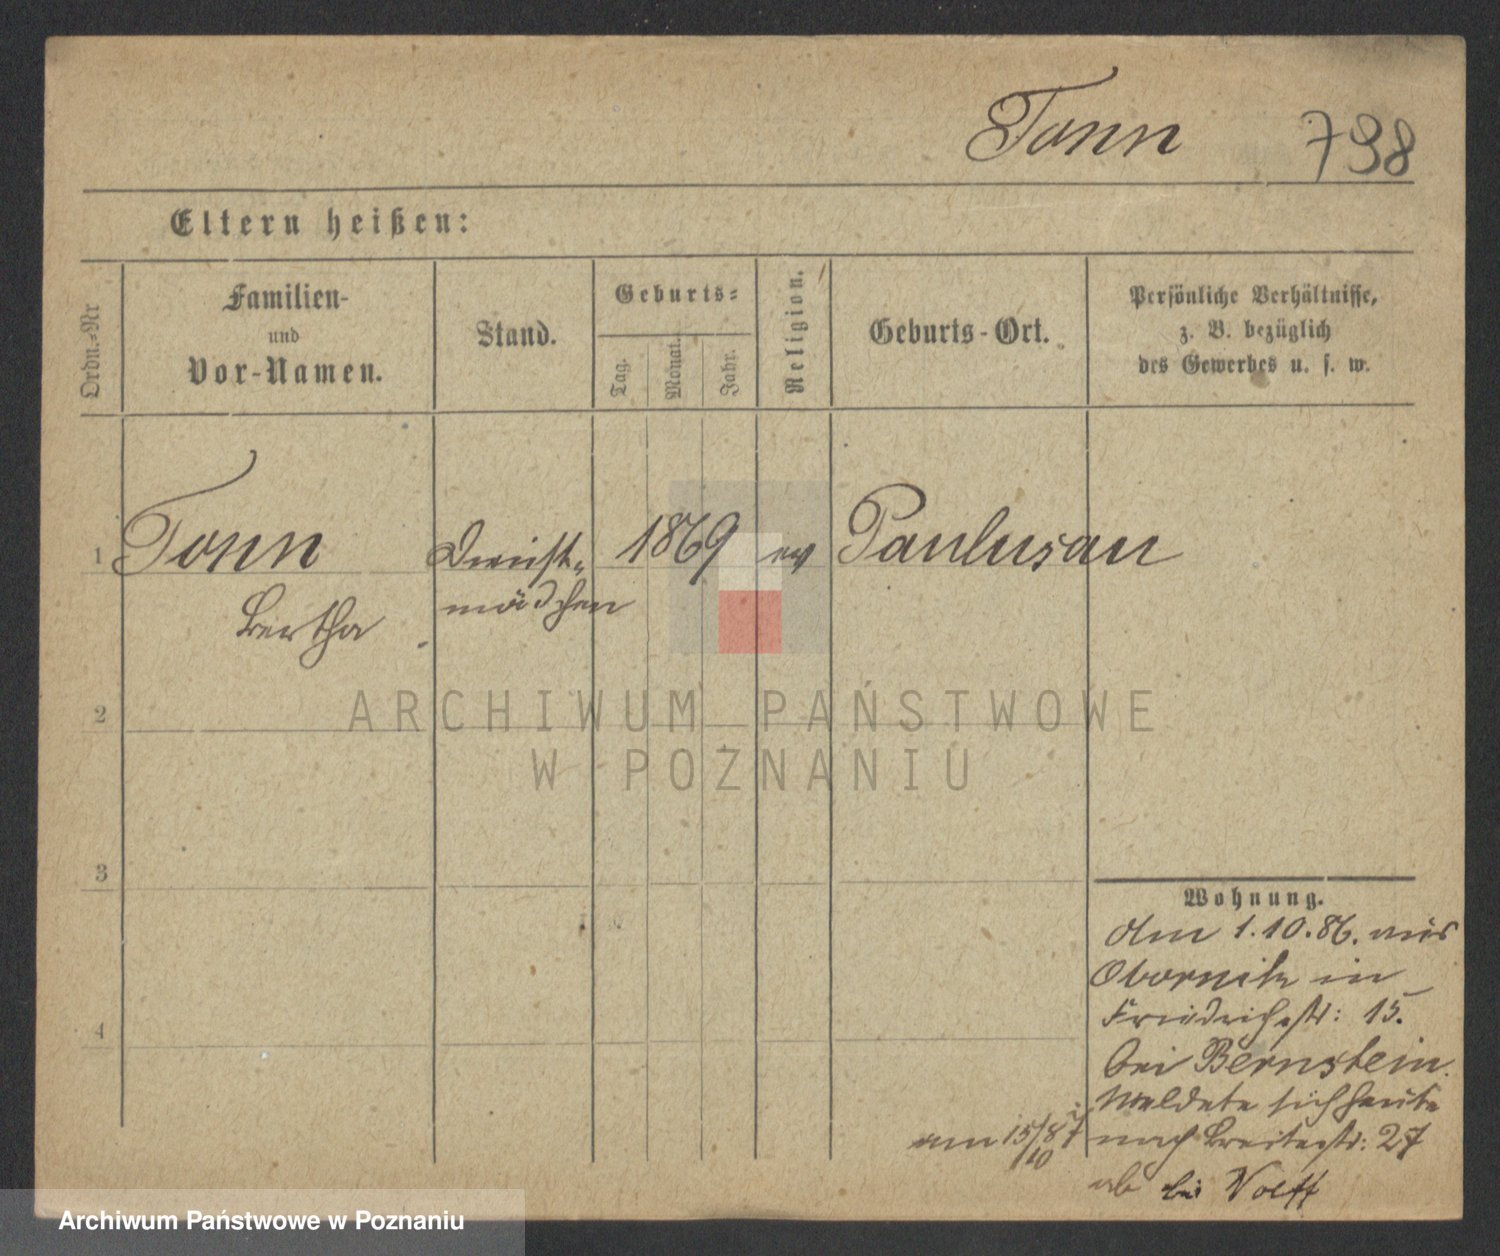 Tonn 798
Eltern heißen:
Ordn.-Nr
Familien-
und
Vor-Namen.
Stand.
Geburts-
Tag.
Monat.
Jahr.
Religion.
Geburts-Ort.
Persönliche Verhältnisse,
z. B. bezüglich
des Gewerbes u. s. w.
1 Tonn Dienst- 1869 ev Paulusau
Bertha mädchen
2
3
4
Wohnung.
Am 1.10.86. aus
Obornik in
Friedrichstr: 15.
bei Bernstein.
Meldete sich heute
am 15/10 87 nach Breitestr: 27
ab bei Wolff
ARCHIWUM PAŃSTWOWE
W POZNANIU
Archiwum Państwowe w Poznaniu